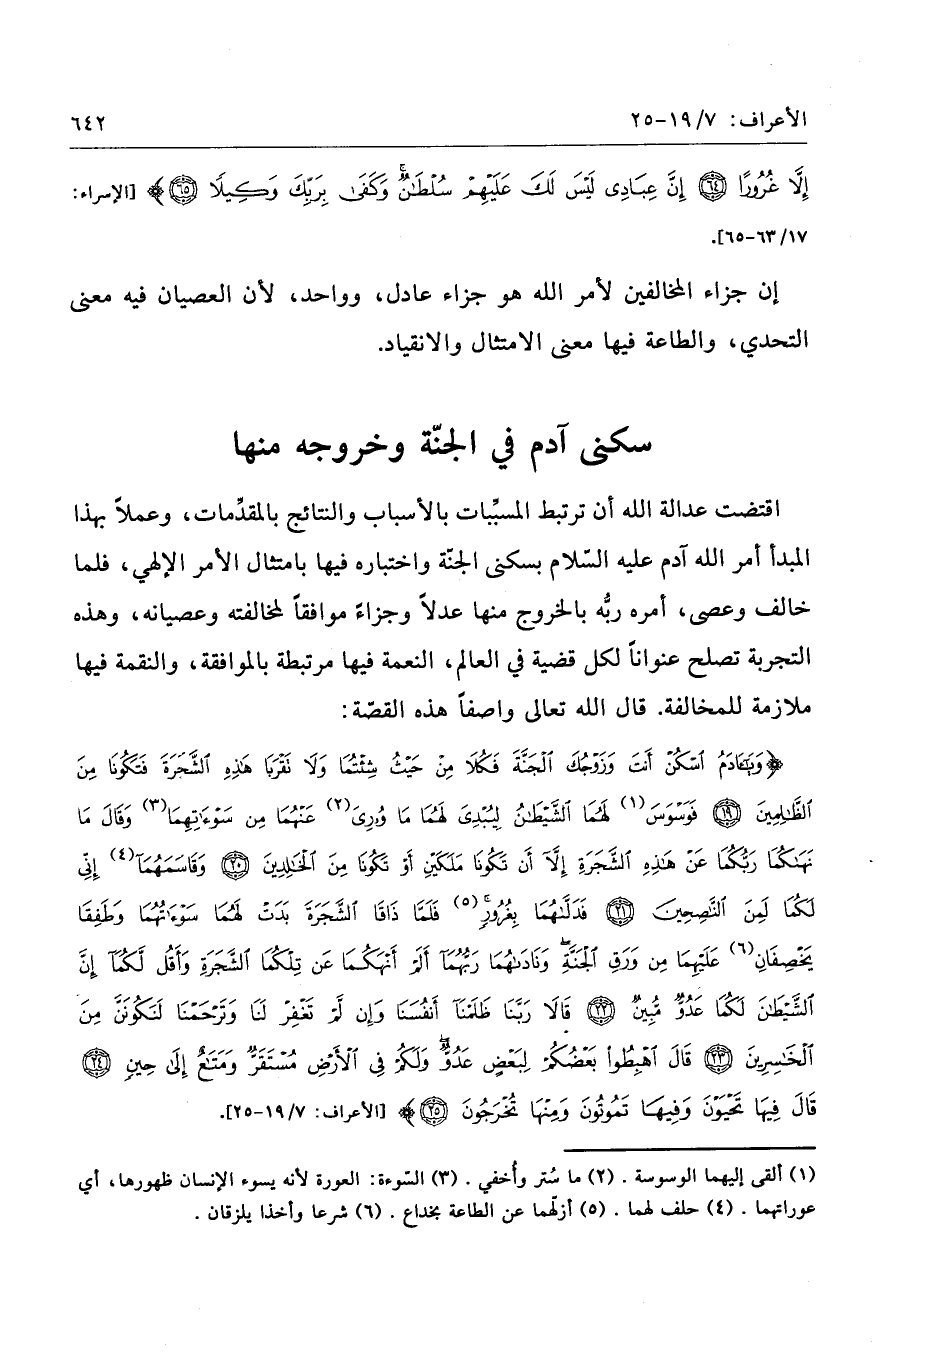 الأعراف: ١٩/٧-٢٥ ٦٤٢
إِلَّا غُرُورًا ﴿٦٤﴾ إِنَّ عِبَادِى لَيْسَ لَكَ عَلَيْهِمْ سُلْطَـٰنٌ ۚ وَكَفَىٰ بِرَبِّكَ وَكِيلًا ﴿٦٥﴾ ﴾ [الإسراء:
٦٣/١٧-٦٥].
إن جزاء المخالفين لأمر الله هو جزاء عادل، وواحد، لأن العصيان فيه معنى
التحدي، والطاعة فيها معنى الامتثال والانقياد.
سكنى آدم في الجنّة وخروجه منها
اقتضت عدالة الله أن ترتبط المسبّبات بالأسباب والنتائج بالمقدِّمات، وعملاً بهذا
المبدأ أمر الله آدم عليه السّلام بسكنى الجنّة واختباره فيها بامتثال الأمر الإلهي، فلما
خالف وعصى، أمره ربُّه بالخروج منها عدلاً وجزاءً موافقاً لمخالفته وعصيانه، وهذه
التجربة تصلح عنواناً لكل قضية في العالم، النعمة فيها مرتبطة بالموافقة، والنقمة فيها
ملازمة للمخالفة. قال الله تعالى واصفاً هذه القصّة:
﴿وَيَـٰٓـَٔادَمُ ٱسْكُنْ أَنتَ وَزَوْجُكَ ٱلْجَنَّةَ فَكُلَا مِنْ حَيْثُ شِئْتُمَا وَلَا تَقْرَبَا هَـٰذِهِ ٱلشَّجَرَةَ فَتَكُونَا مِنَ
ٱلظَّـٰلِمِينَ ﴿١٩﴾ فَوَسْوَسَ(١) لَهُمَا ٱلشَّيْطَـٰنُ لِيُبْدِىَ لَهُمَا مَا وُۥرِىَ(٢) عَنْهُمَا مِن سَوْءَٰتِهِمَا(٣) وَقَالَ مَا
نَهَىٰكُمَا رَبُّكُمَا عَنْ هَـٰذِهِ ٱلشَّجَرَةِ إِلَّآ أَن تَكُونَا مَلَكَيْنِ أَوْ تَكُونَا مِنَ ٱلْخَـٰلِدِينَ ﴿٢٠﴾ وَقَاسَمَهُمَآ(٤) إِنِّى
لَكُمَا لَمِنَ ٱلنَّـٰصِحِينَ ﴿٢١﴾ فَدَلَّىٰهُمَا بِغُرُورٍ ۚ(٥) فَلَمَّا ذَاقَا ٱلشَّجَرَةَ بَدَتْ لَهُمَا سَوْءَٰتُهُمَا وَطَفِقَا
يَخْصِفَانِ(٦) عَلَيْهِمَا مِن وَرَقِ ٱلْجَنَّةِ ۖ وَنَادَىٰهُمَا رَبُّهُمَآ أَلَمْ أَنْهَكُمَا عَن تِلْكُمَا ٱلشَّجَرَةِ وَأَقُل لَّكُمَآ إِنَّ
ٱلشَّيْطَـٰنَ لَكُمَا عَدُوٌّ مُّبِينٌ ﴿٢٢﴾ قَالَا رَبَّنَا ظَلَمْنَآ أَنفُسَنَا وَإِن لَّمْ تَغْفِرْ لَنَا وَتَرْحَمْنَا لَنَكُونَنَّ مِنَ
ٱلْخَـٰسِرِينَ ﴿٢٣﴾ قَالَ ٱهْبِطُوا۟ بَعْضُكُمْ لِبَعْضٍ عَدُوٌّ ۖ وَلَكُمْ فِى ٱلْأَرْضِ مُسْتَقَرٌّ وَمَتَـٰعٌ إِلَىٰ حِينٍ ﴿٢٤﴾
قَالَ فِيهَا تَحْيَوْنَ وَفِيهَا تَمُوتُونَ وَمِنْهَا تُخْرَجُونَ ﴿٢٥﴾ ﴾ [الأعراف: ١٩/٧-٢٥].
(١) ألقى إليهما الوسوسة . (٢) ما سُتر وأُخفي . (٣) السّوءة: العورة لأنه يسوء الإنسان ظهورها، أي
عوراتهما . (٤) حلف لهما . (٥) أزلّهما عن الطاعة بخداع . (٦) شرعا وأخذا يلزقان .